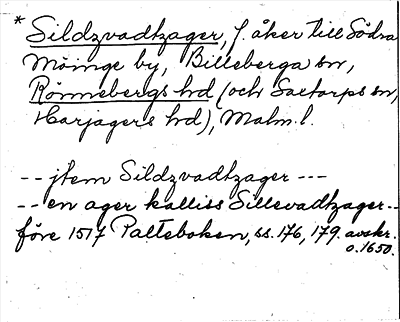 * Sildzvadtzager, f. åker till Södra
Möinge by, Billeberga sn,
Rönnebergs hd (och Saxtorps sn,
Harjagers hd), Malm. l.
-- jtem Sildzvadtzager ---
-- en ager kalliss Sillevadtzager --
före 1517 Palteboken, ss. 176, 179. avskr.
o. 1650.